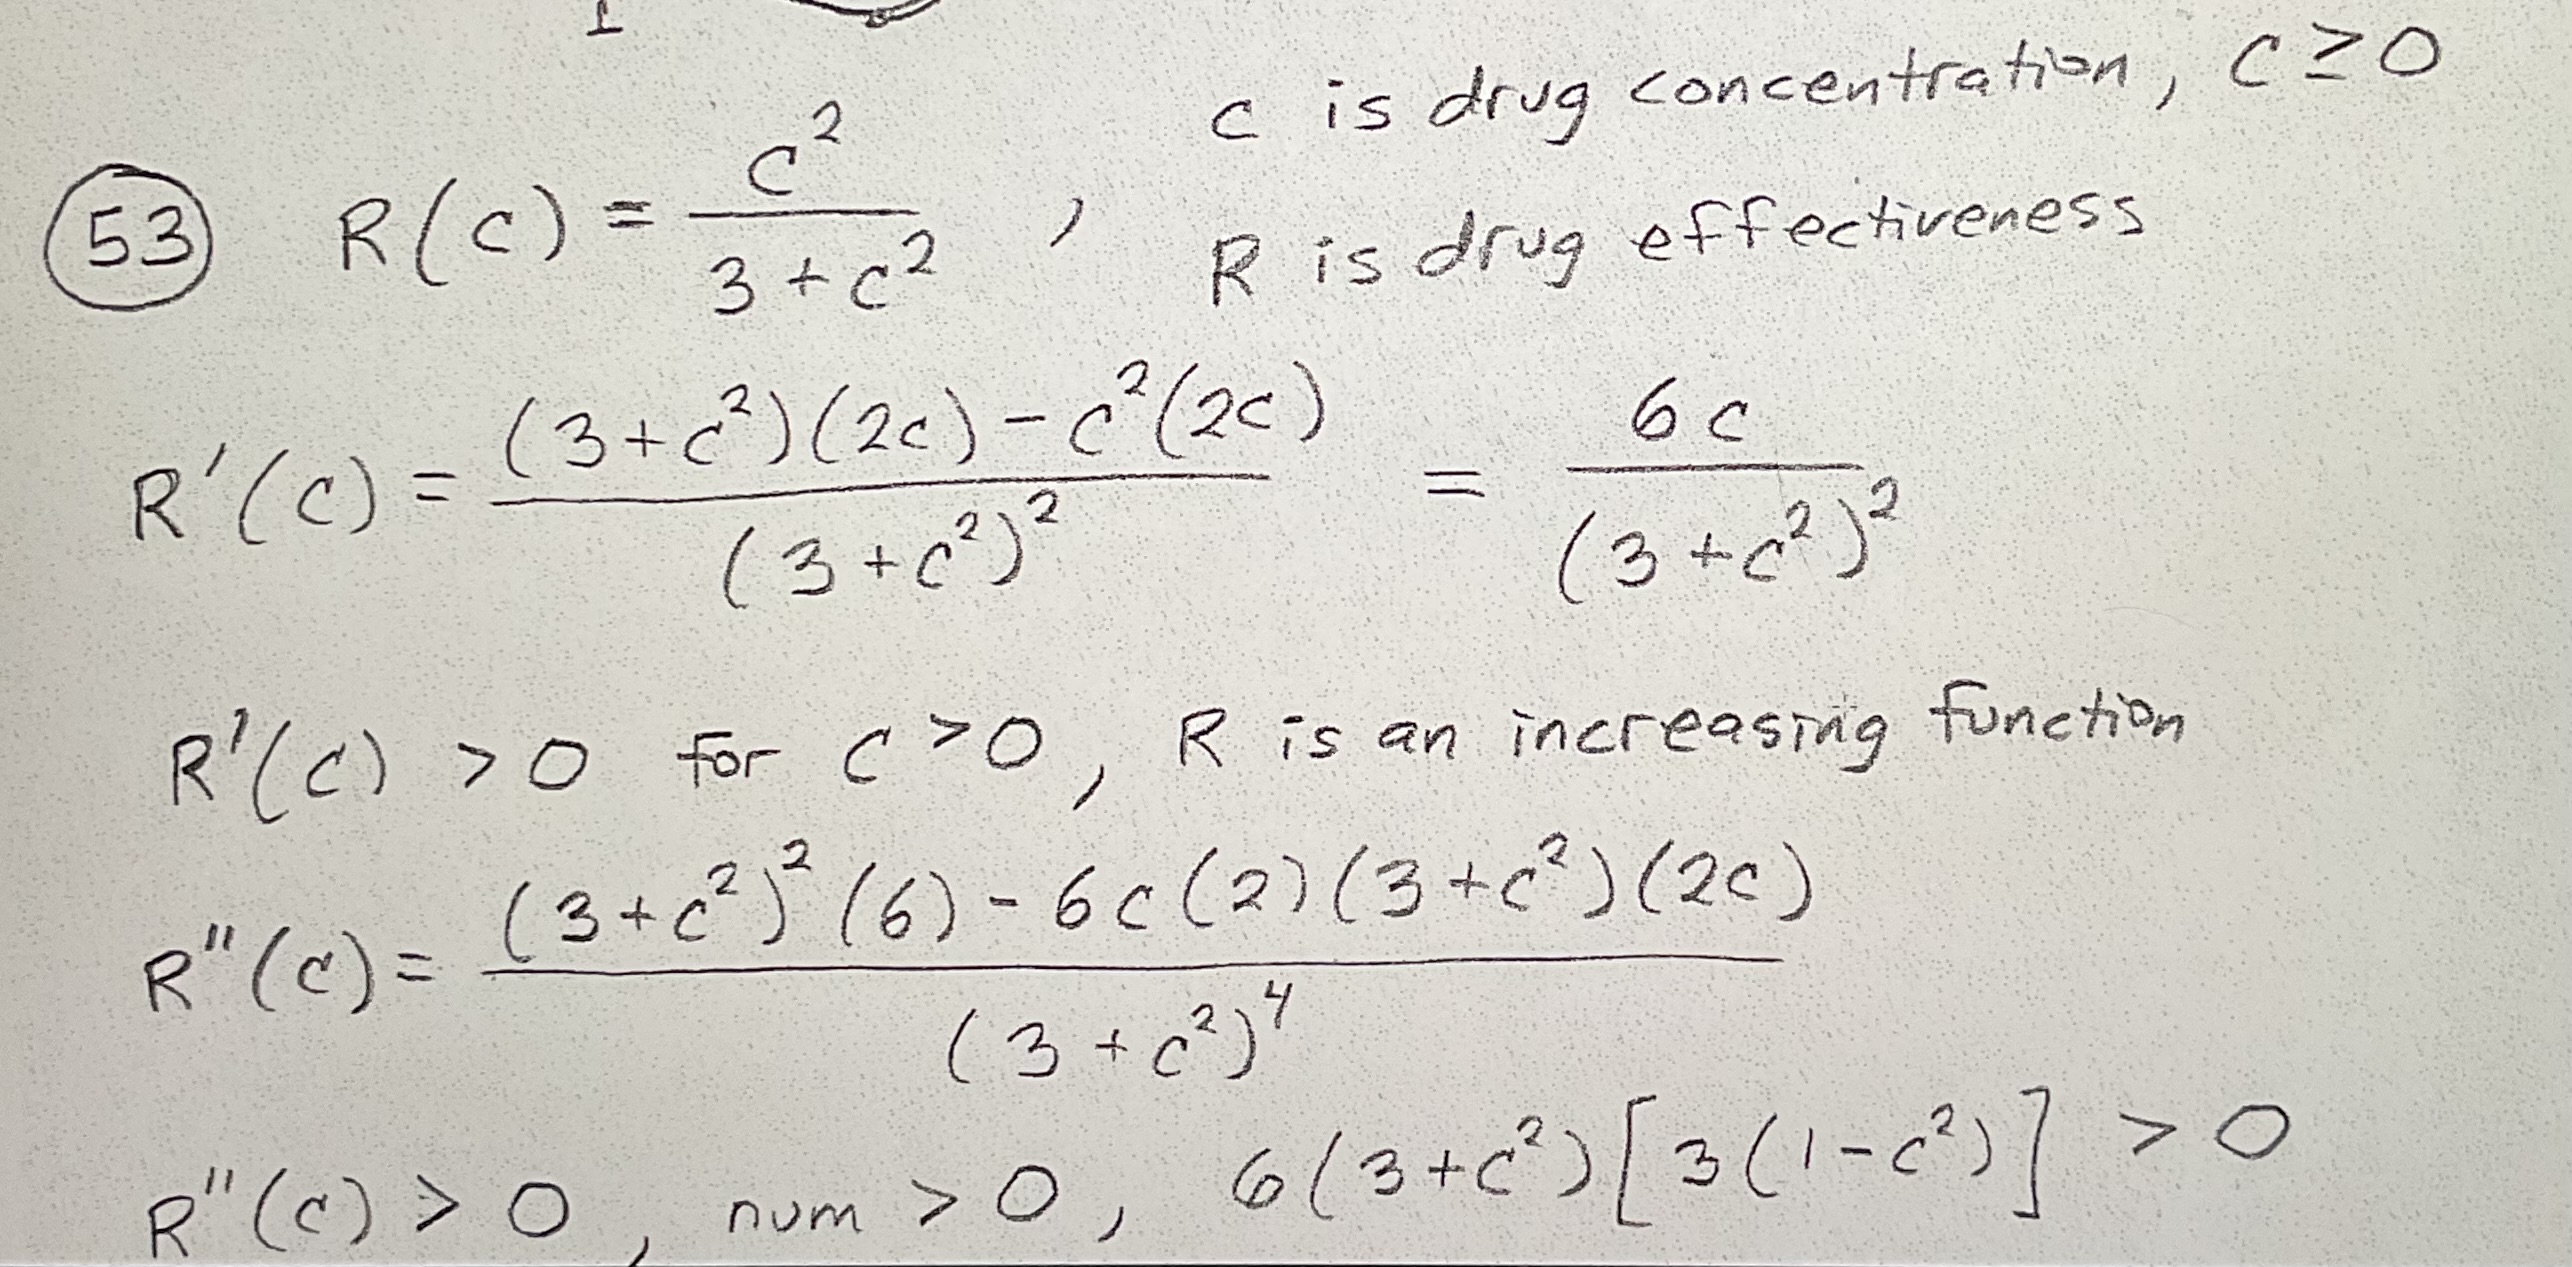 c is drug concentration, c ≥ 0
(53) R(c) = c² / (3 + c²) ,
R is drug effectiveness
R'(c) = ((3+c²)(2c) - c²(2c)) / (3+c²)² = 6c / (3+c²)²
R'(c) > 0 for c > 0, R is an increasing function
R''(c) = ((3+c²)²(6) - 6c(2)(3+c²)(2c)) / (3+c²)⁴
R''(c) > 0, num > 0, 6(3+c²)[3(1-c²)] > 0